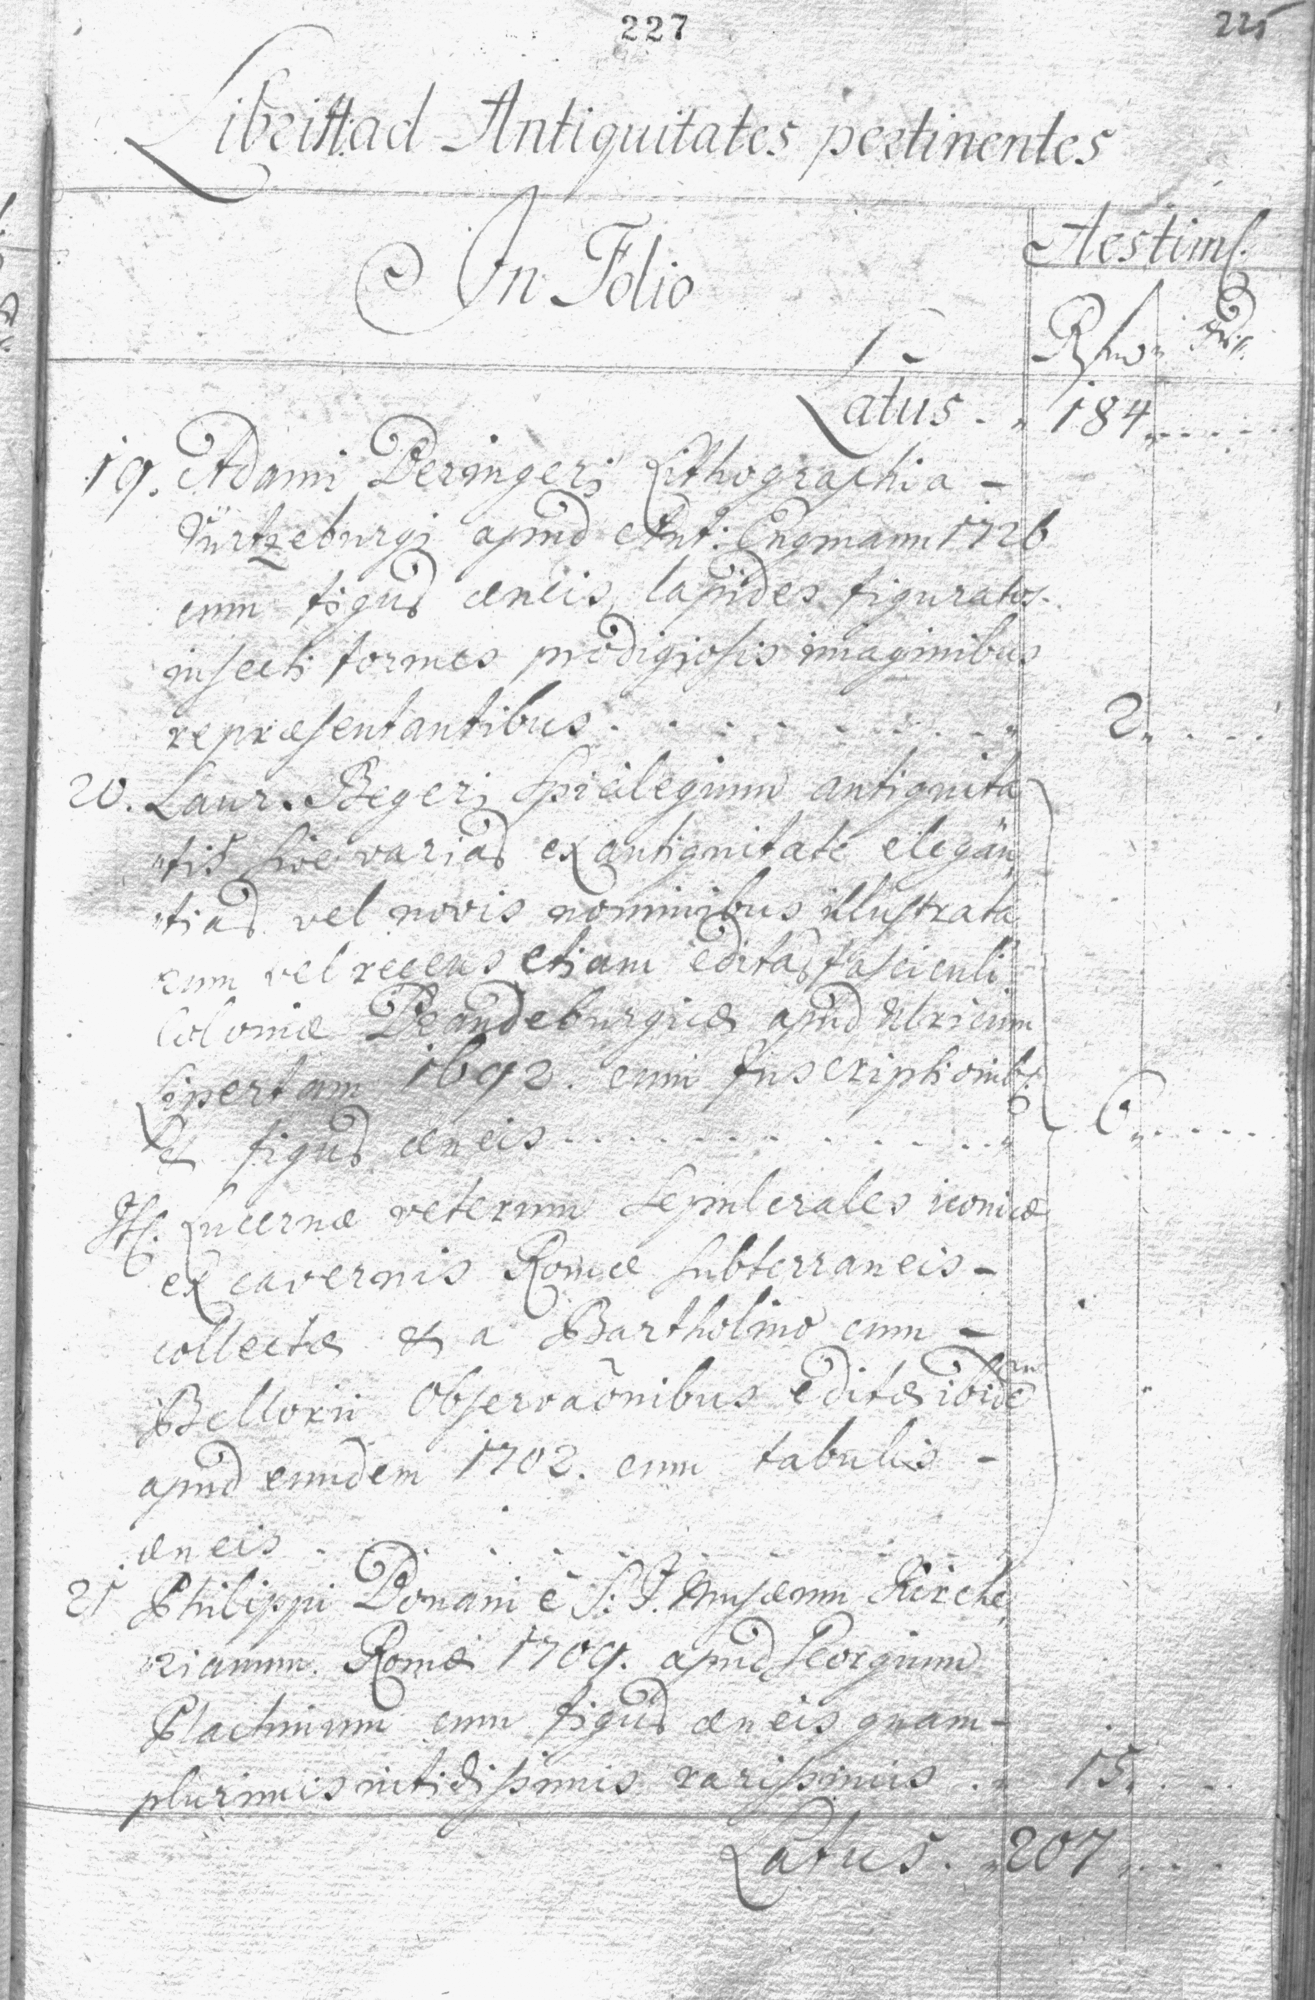 227
225
Libri ad Antiquitates pertinentes
In Folio
Aestim.
Rhn. Xr.
Latus. 184.
19. Adami Beringeri Lithographia -
Würtzeburgi apud Ant: Engmann 1726
cum figus æneis lapides figuratos
insecti formes prodigiosis imaginibus
repræsentantibus. 2.
20. Laur. Begeri Spicilegium antiquita
tis sive varias ex antiquitate elegan
tias vel novis nominibus illustrata
cum vel recens etiam editas fasciculi
Coloniæ Brandeburgicæ apud Ulricum
Lipertum 1692. cum Inscriptionibs:
& figus æneis 6.
It. Lucernæ veterum Sepulcrales iconicæ
ex cavernis Romæ subterraneis -
collectæ & a Bartholino cum -
Bellorii Observaõnibus editæ ibidem
apud eundem 1702. cum tabulis -
æneis
21 Philippi Bonani è S. J. Musæum Kirche
rianum. Romæ 1709. apud Georgium
Plachnium cum figus æneis quam-
plurimis nitidissimis rarissimis 15.
Latus. 207